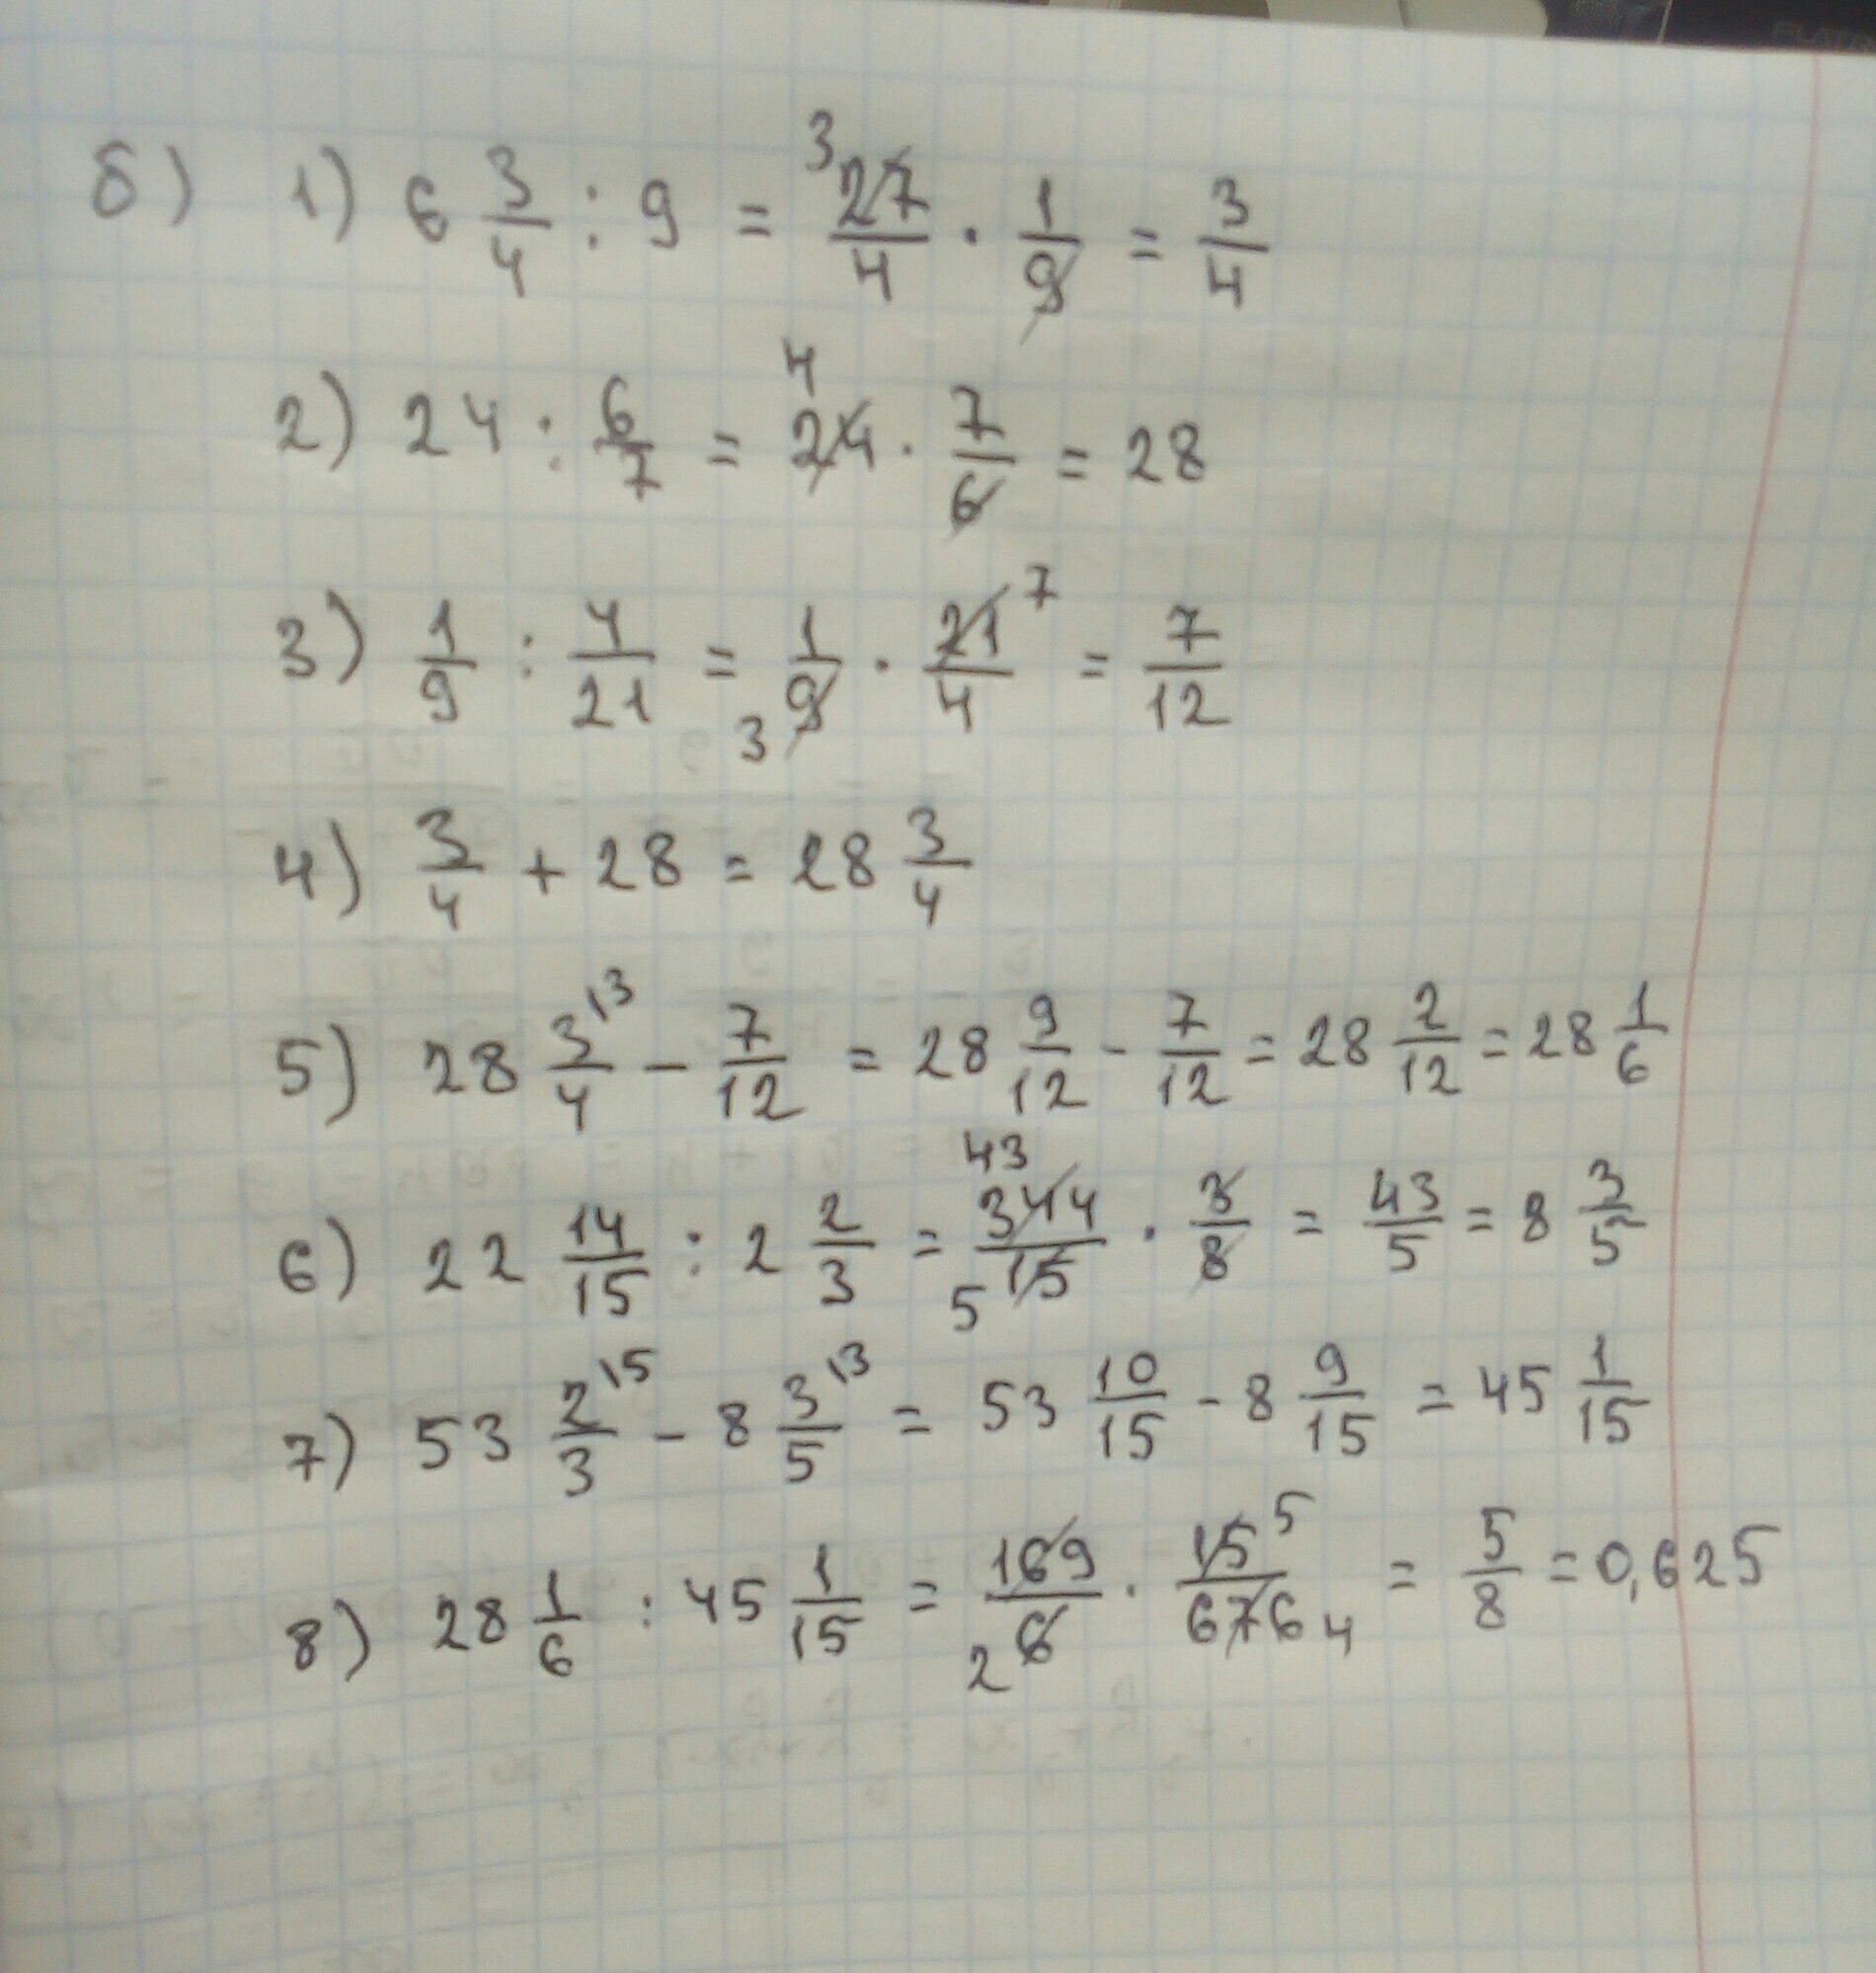 б) 1) 6 3/4 : 9 = ³27/4 · 1/9 = 3/4
2) 24 : 6/7 = ⁴24 · 7/6 = 28
3) 1/9 : 4/21 = 1/₃9 · 21⁷/4 = 7/12
4) 3/4 + 28 = 28 3/4
5) 28 3\3/4 - 7/12 = 28 9/12 - 7/12 = 28 2/12 = 28 1/6
6) 22 14/15 : 2 2/3 = ⁴³344/₅15 · 3/8 = 43/5 = 8 3/5
7) 53 2\5/3 - 8 3\3/5 = 53 10/15 - 8 9/15 = 45 1/15
8) 28 1/6 : 45 1/15 = 169/₂6 · 15⁵/676₄ = 5/8 = 0,625